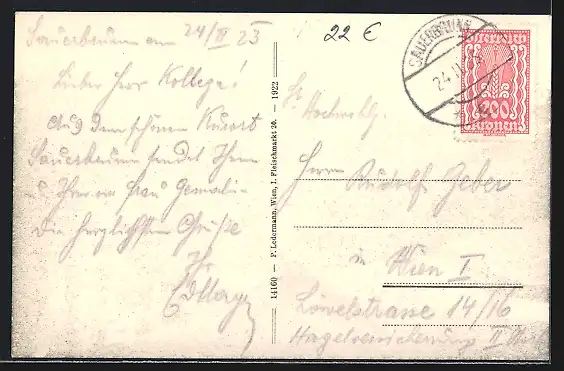 Sauerbrunn am 24/II 23
22 €
Lieber Herr Kollege!
Aus dem schönen Kurort
Sauerbrunn sendet Ihnen
u Ihrer Frau Gemah-
lin die herzlichsten Grüße
Ihr
14160 — P. Ledermann, Wien, I. Fleischmarkt 20. — 1922
SAUERBRUNN
24.II
400
KRONEN
Sr Hochwohlg.
Herrn Rudolf Geber
in Wien I
Löwelstrasse 14/16
Hagelversicherung II